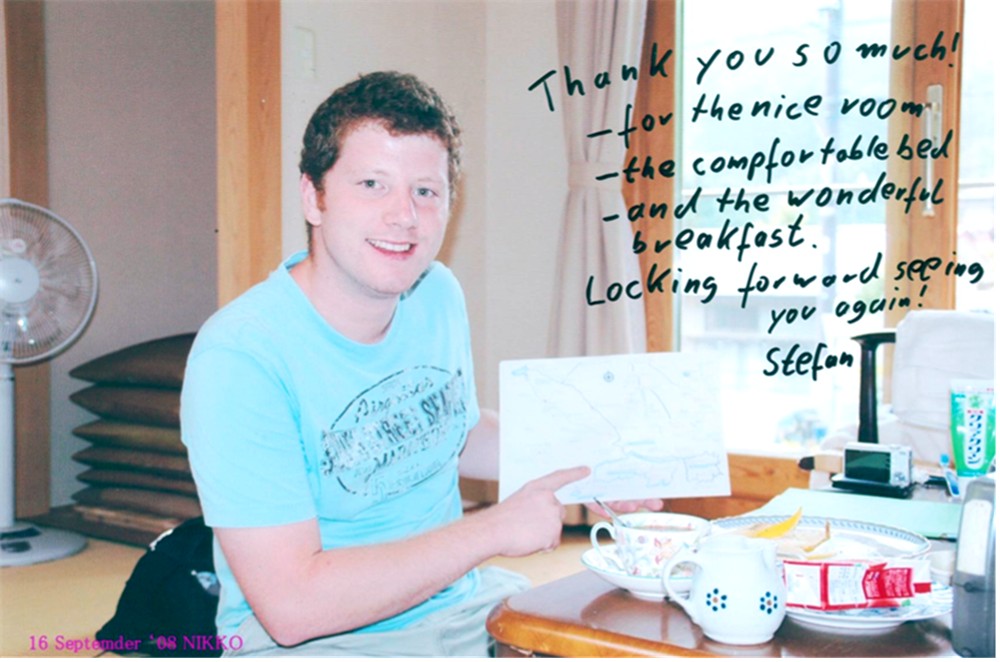 Thank you so much!
-for the nice room
-the compfortable bed
-and the wonderful
breakfast.
Locking forward seeing
you again!
Stefan
16 Septemder '08 NIKKO